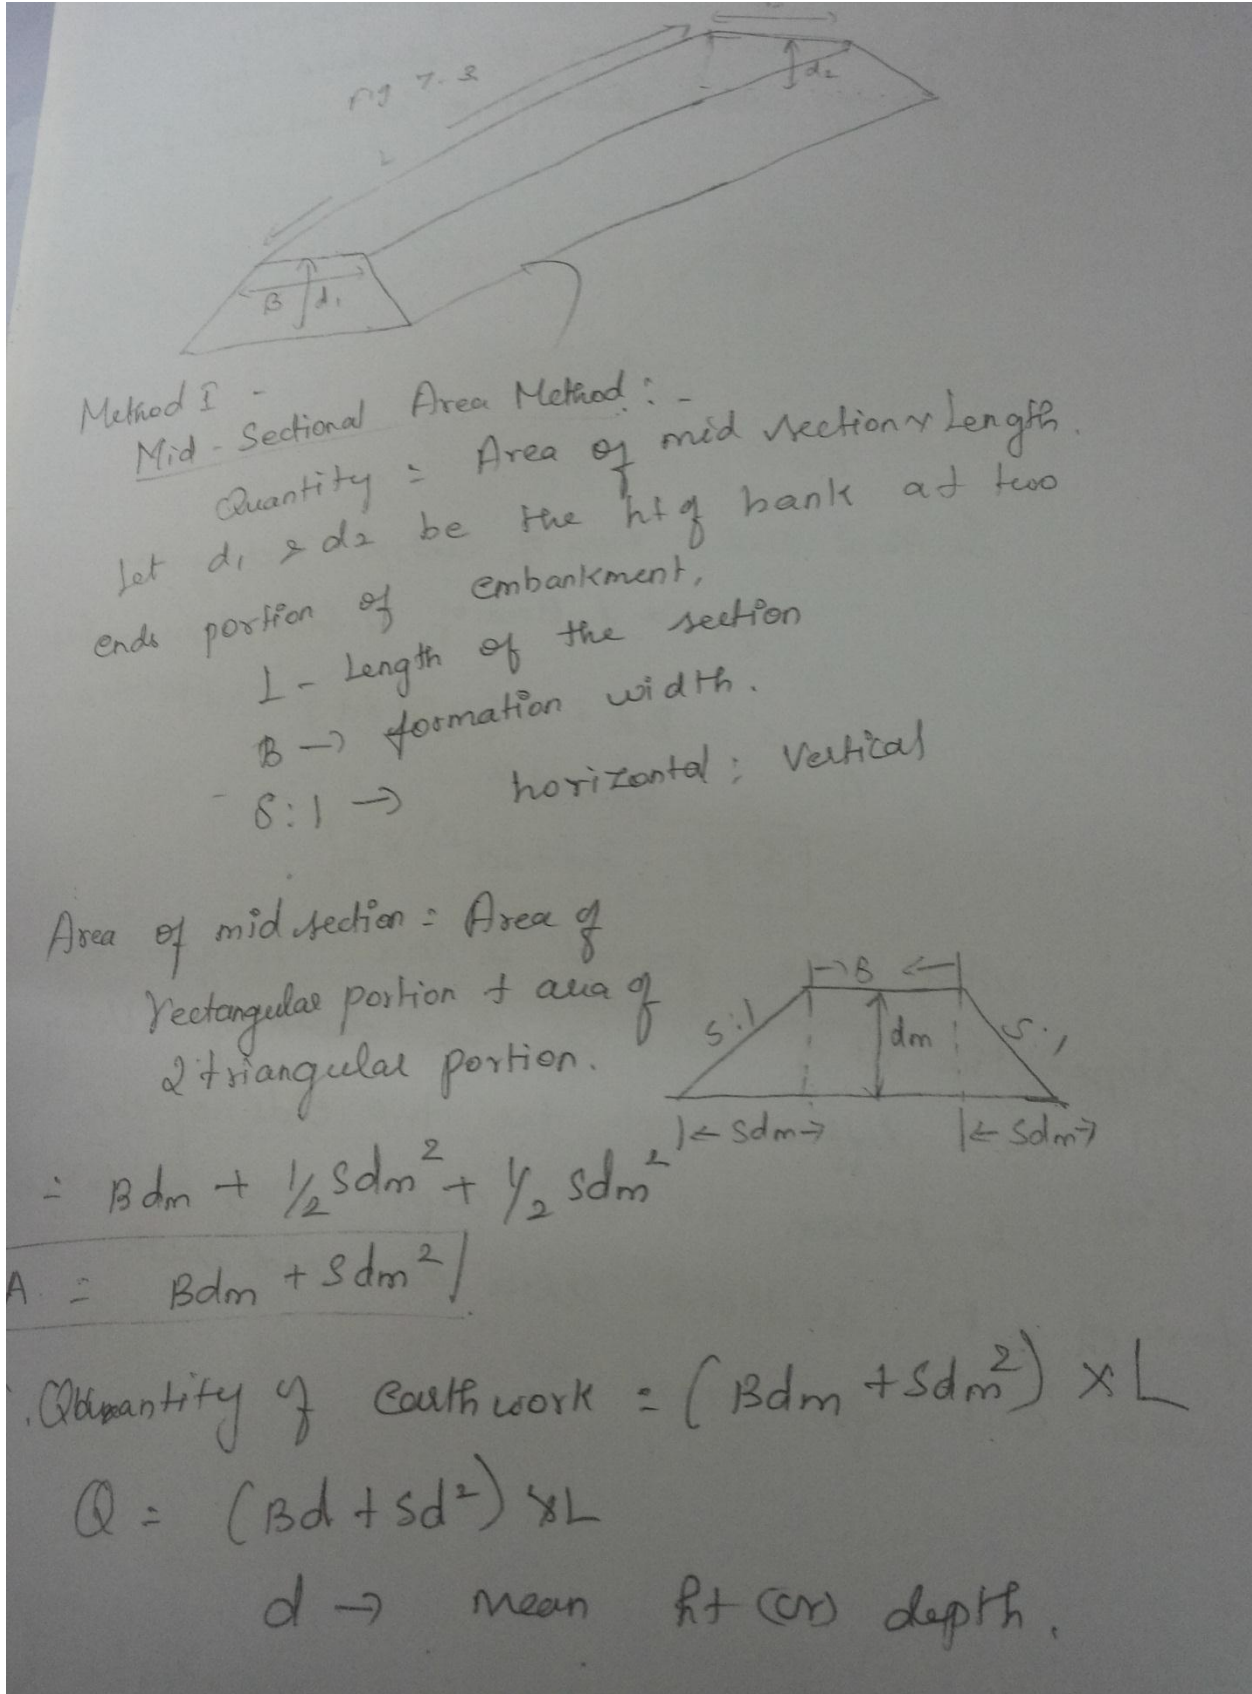 Fig 7.3
L
d2
B
d1
Method I -
Mid - Sectional Area Method : -
Quantity = Area of mid section x Length.
Let d1 & d2 be the ht of bank at two
ends portion of embankment,
L - Length of the section
B → formation width.
S:1 → horizontal : Vertical
Area of mid section = Area of
rectangular portion + area of
2 triangular portion.
→ B ←
S:1
dm
S:1
← Sdm →
← Sdm →
= Bdm + 1/2 Sdm² + 1/2 Sdm²
A = Bdm + Sdm²
Quantity of earth work = (Bdm + Sdm²) x L
Q = (Bd + Sd²) x L
d → mean ht (or) depth.